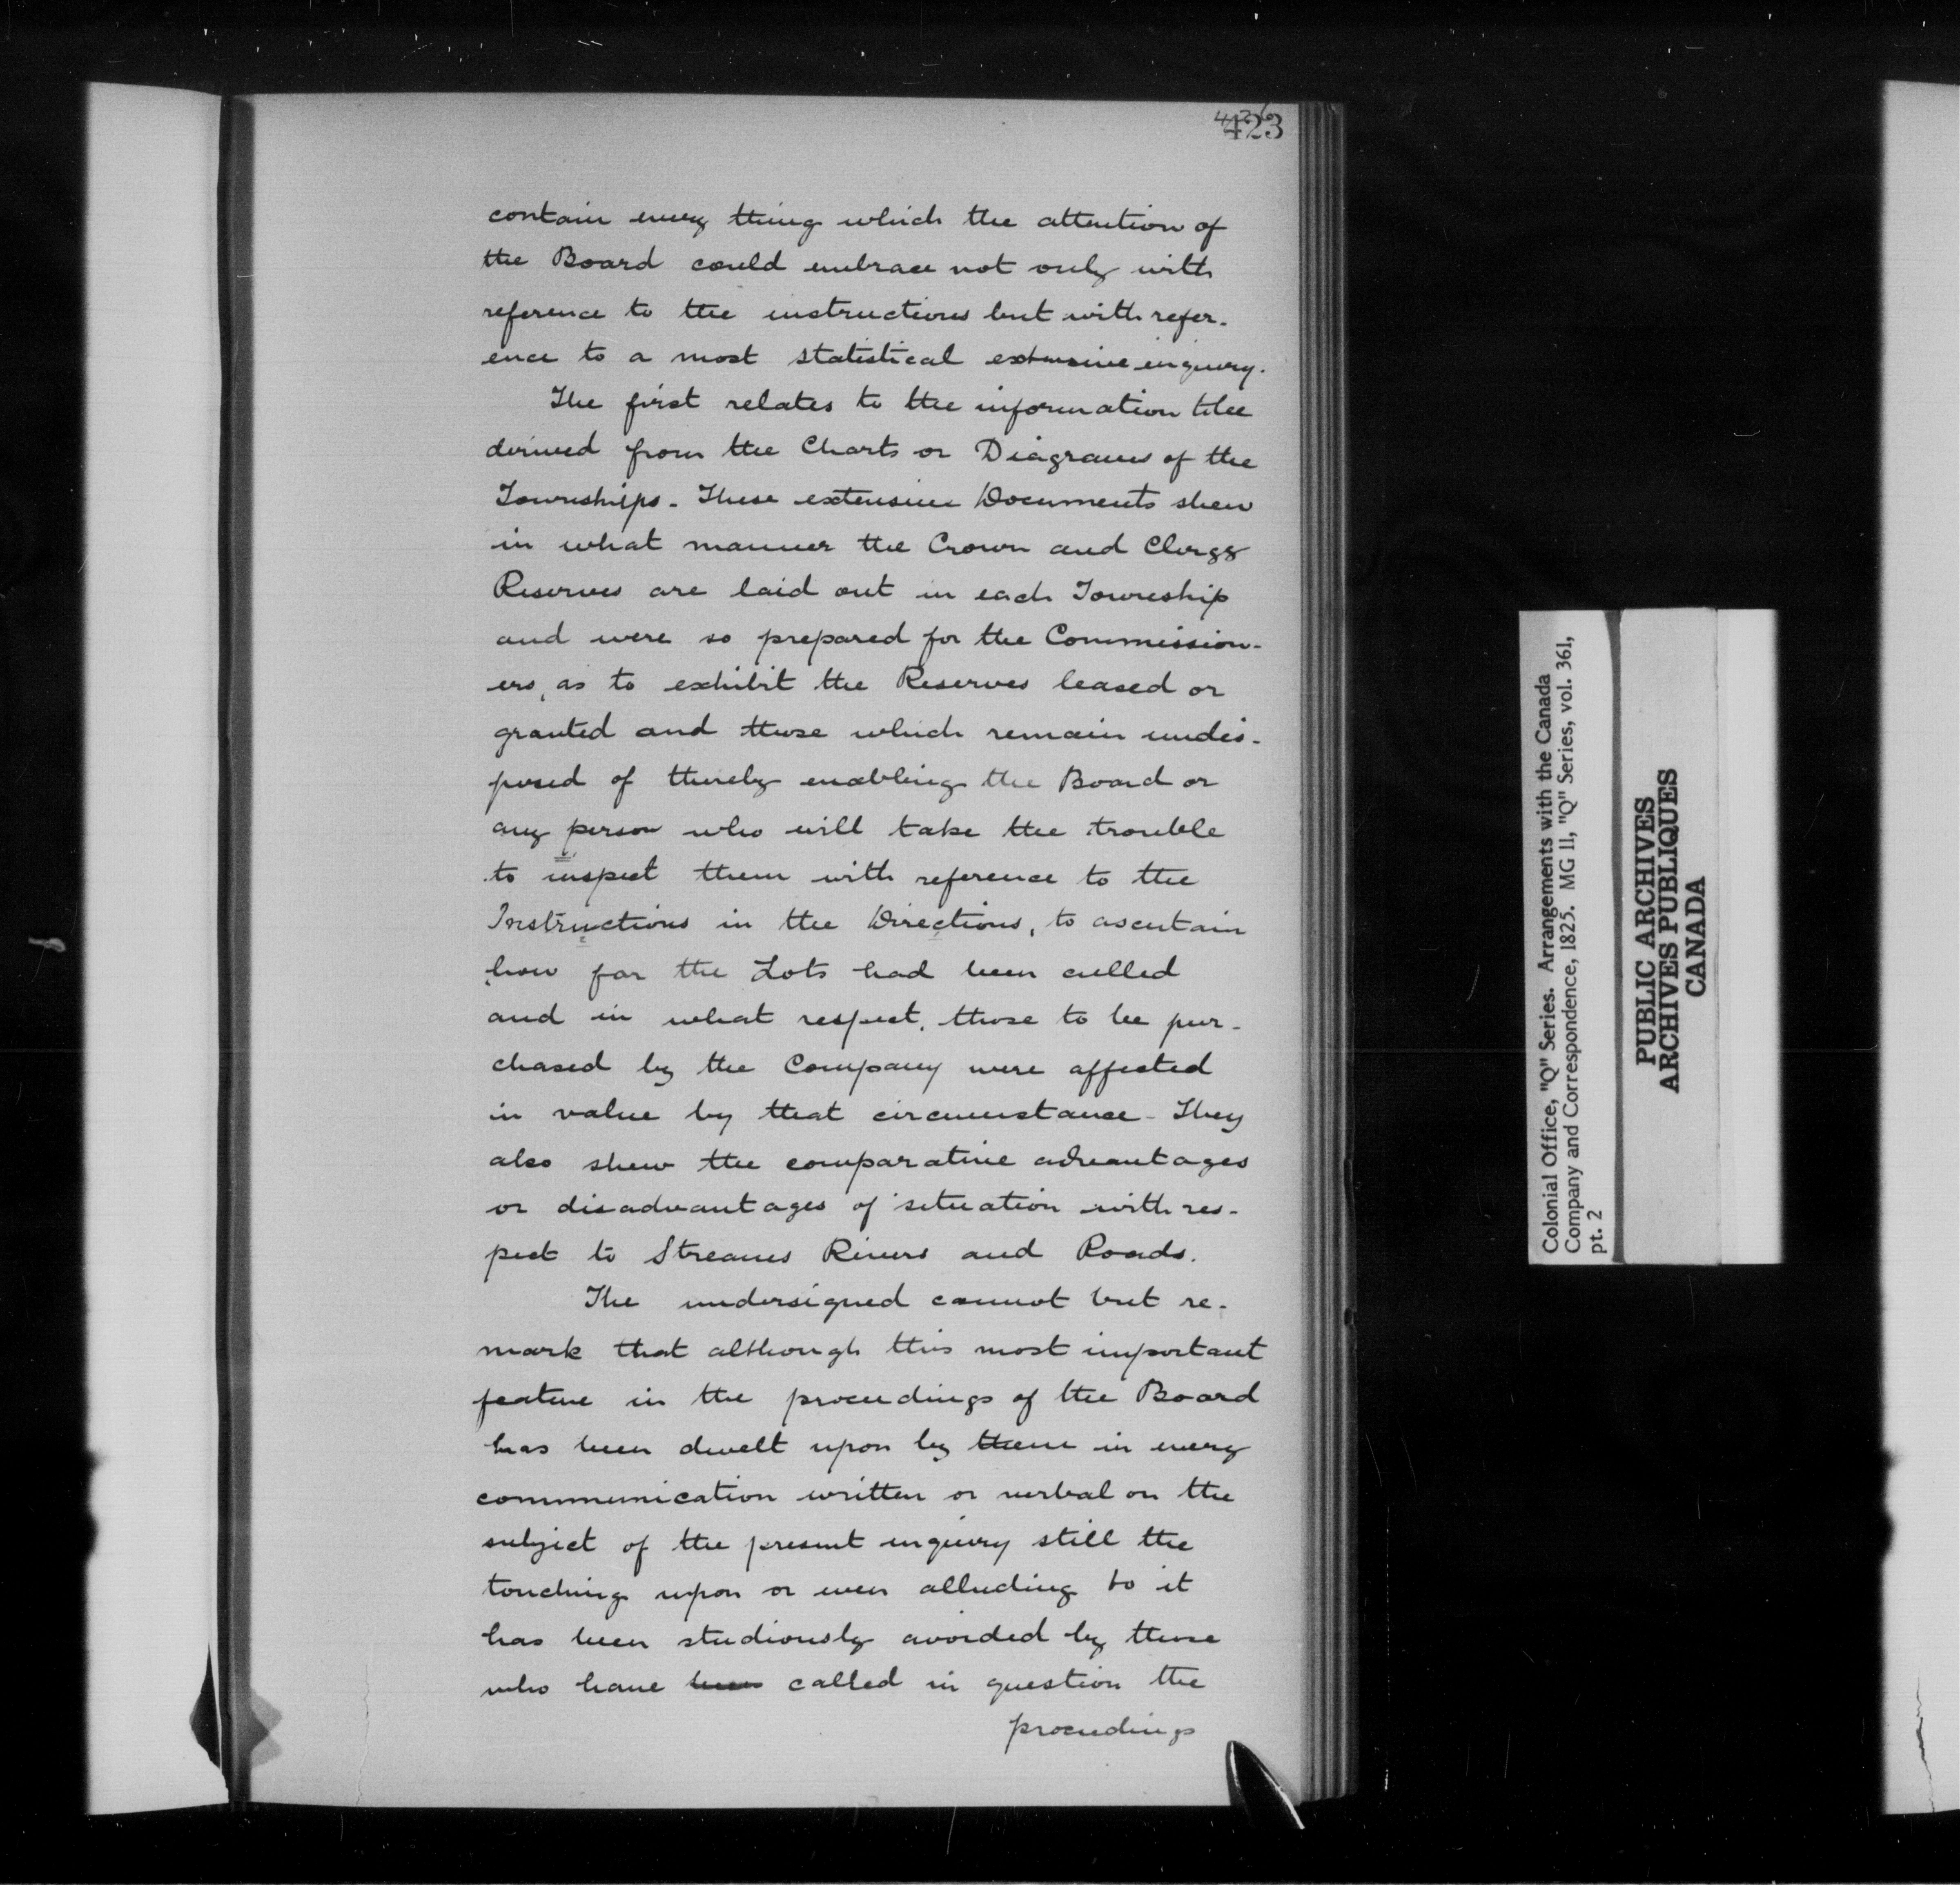 426
423
contain every thing which the attention of
the Board could embrace not only with
reference to the instructions but with refer-
ence to a most statistical extensive enquiry.
The first relates to the information to be
derived from the Charts or Diagrams of the
Townships - These extensive Documents shew
in what manner the Crown and Clergy
Reserves are laid out in each Township
and were so prepared for the Commission-
ers, as to exhibit the Reserves leased or
granted and those which remain undis-
posed of thereby enabling the Board or
any person who will take the trouble
to inspect them with reference to the
Instructions in the Directions, to ascertain
how far the Lots had been culled
and in what respect, those to be pur-
chased by the Company were affected
in value by that circumstance - They
also shew the comparative advantages
or disadvantages of situation with res-
pect to Streams Rivers and Roads.
The undersigned cannot but re-
mark that although this most important
feature in the proceedings of the Board
has been dwelt upon by them in every
communication written or verbal on the
subject of the present enquiry still the
touching upon or even alluding to it
has been studiously avoided by those
who have been called in question the
proceedings
Colonial Office, "Q" Series. Arrangements with the Canada
Company and Correspondence, 1825. MG 11, "Q" Series, vol. 361,
pt. 2
PUBLIC ARCHIVES
ARCHIVES PUBLIQUES
CANADA